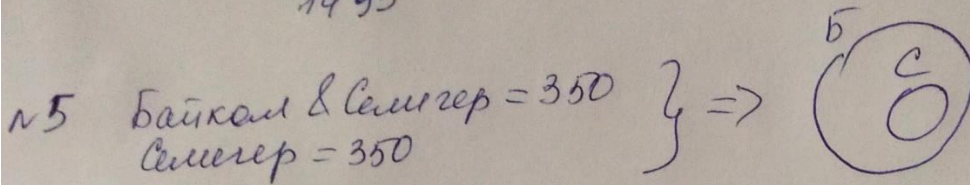 №5 Байкал & Селигер = 350 } => Б С
Селигер = 350